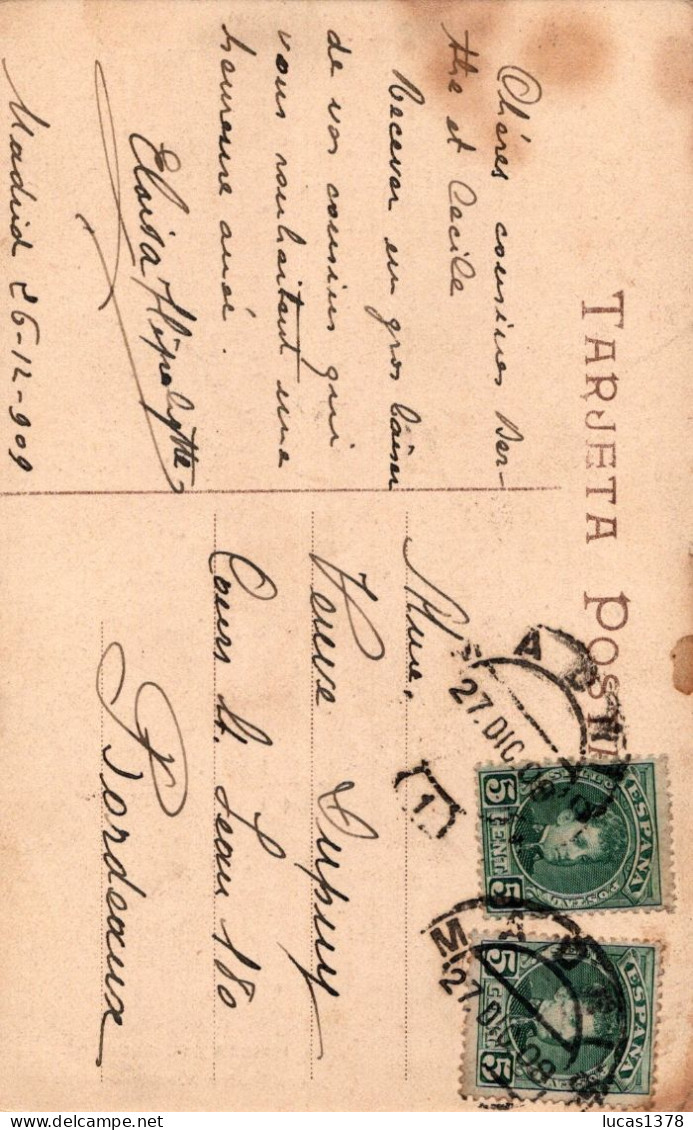 TARJETA POSTAL
Chères cousines Ber-
the et Cecile
Recever un gros baiser
de vos cousins qui
vous souhaitent une
heureuse anée.
Eloisa Hipolytte
Madrid 26-12-909
Mme.
Veuve Dupuy
Cours St. Jean 180
Bordeaux
MADRID
27.DIC 08
(1)
MADRID
27.DIC 08
ESPAÑA
5 CENT 5
ESPAÑA
5 CENT 5
lucas1378